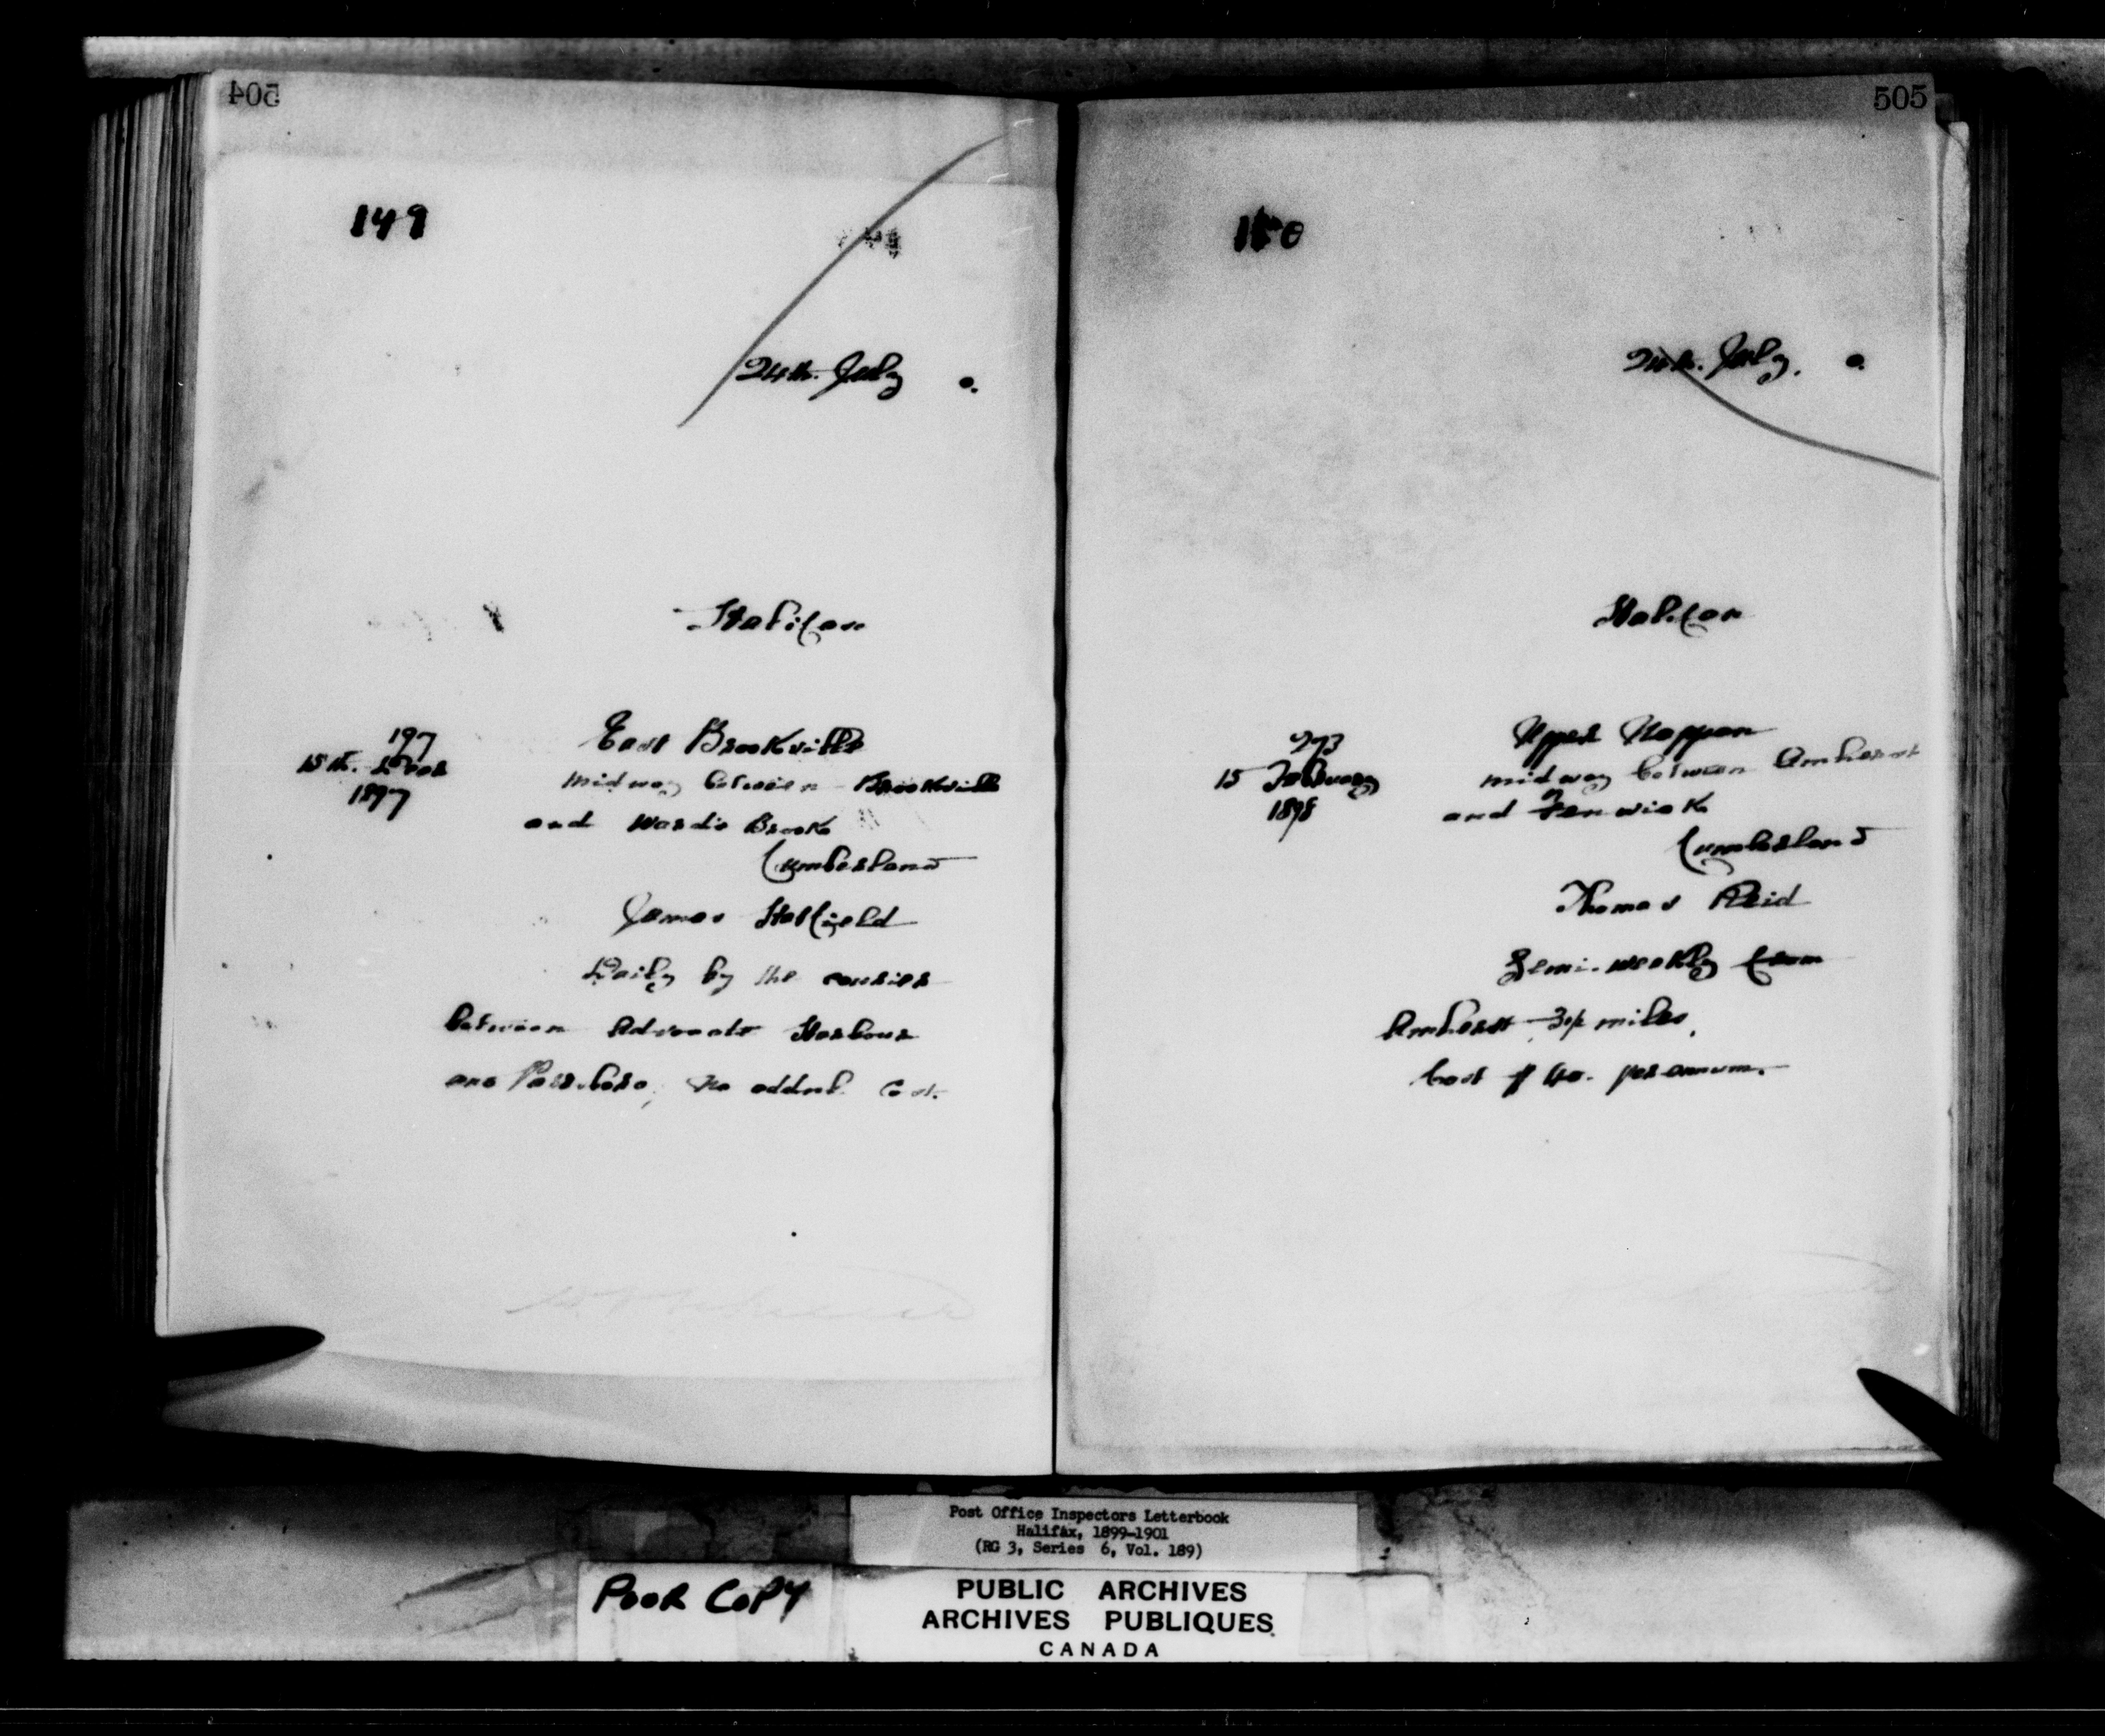 504
149
24th. July 0.
Halifax
197
15th. Decr
1897
East Brookville
midway between Brookville
and Ward's Brook
Cumberland
James Hatfield
Daily by the courier
between Advocate Harbour
and Parrsboro, no addnl. Cost.
505
150
24th. July. 0.
Halifax
273
15 February
1898
Upper Nappan
midway between Amherst
and Fenwick
Cumberland
Thomas Reid
Semi-weekly from
Amherst 3½ miles,
Cost $40. per annum.
Post Office Inspectors Letterbook
Halifax, 1899-1901
(RG 3, Series 6, Vol. 189)
POOR COPY
PUBLIC ARCHIVES
ARCHIVES PUBLIQUES
CANADA